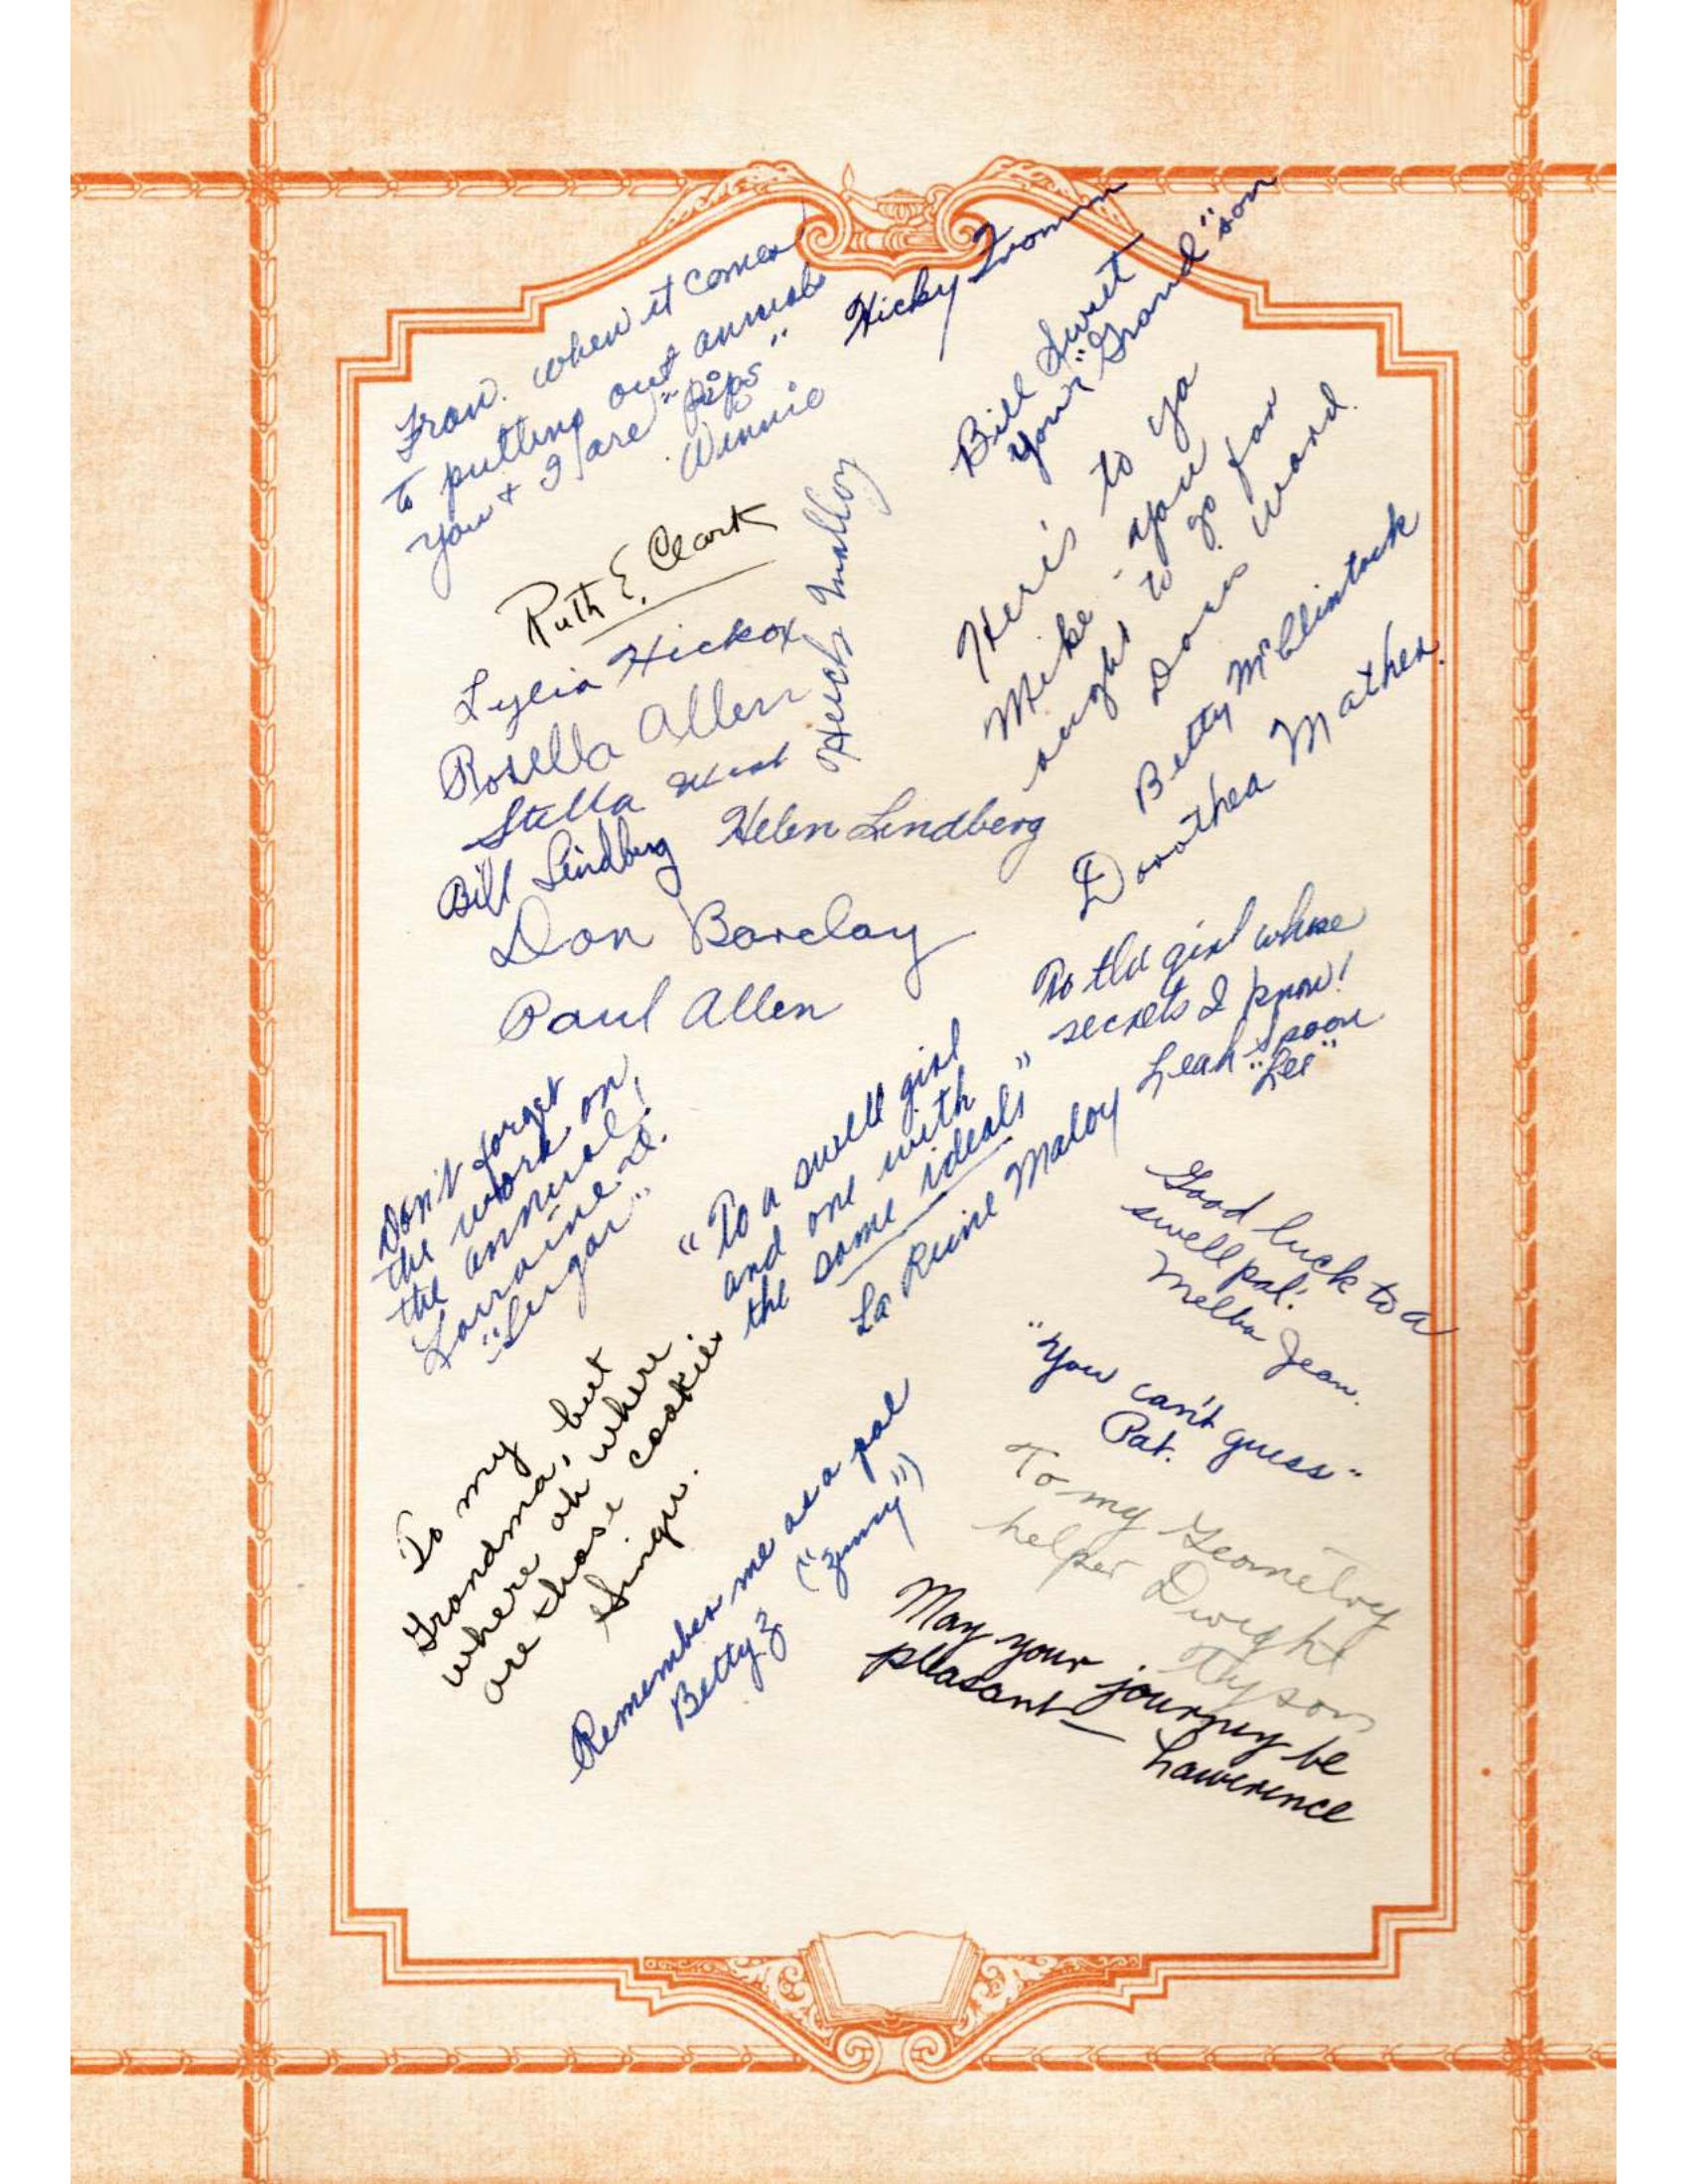 Fran. when it comes
to putting out annuals
you & I are "pips"
Winnie
Hicky
Bill Sweet
your "Grand"son
Ruth E. Clark
Hugh Malloy
Here's to ya
Mike - you
aught to go far
Doris Ward.
Hickox
Rosella Allen
Stella West
Bill Lindberg
Helen Lindberg
Betty McClintock
Dorothea Mather.
Don Barclay
Paul Allen
To the girl whose
secrets I know!
Leah Spoon
"Lee"
Don't forget
the work on
the annual!
Lorraine
"
"To a swell girl
and one with
the same ideals"
La Reine Maloy
Good luck to a
swell pal!
Melba Jean.
"You can't guess"
Pat.
To my
Grandma, but
where oh where
are those cookies
Remember me as a pal
Betty Z ("Zumy")
To my Geometry
helper Dwight
Tyson
May your journey be
pleasant—
Lawerence